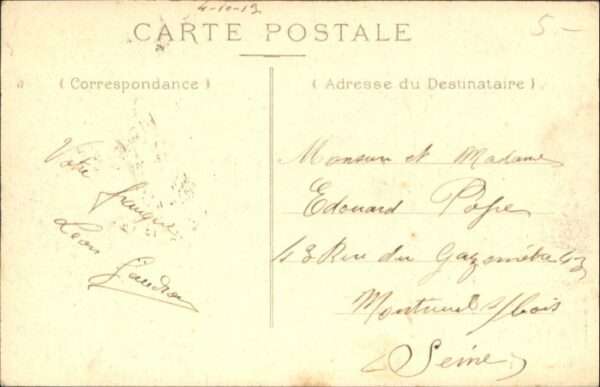 4-10-13
5.-
CARTE POSTALE
(Correspondance)
(Adresse du Destinataire)
Votre
Léon
Gaudron
Monsieur et Madame
Edouard Pope
43 Rue du Gazomètre 43
Montreuil s/bois
Seine